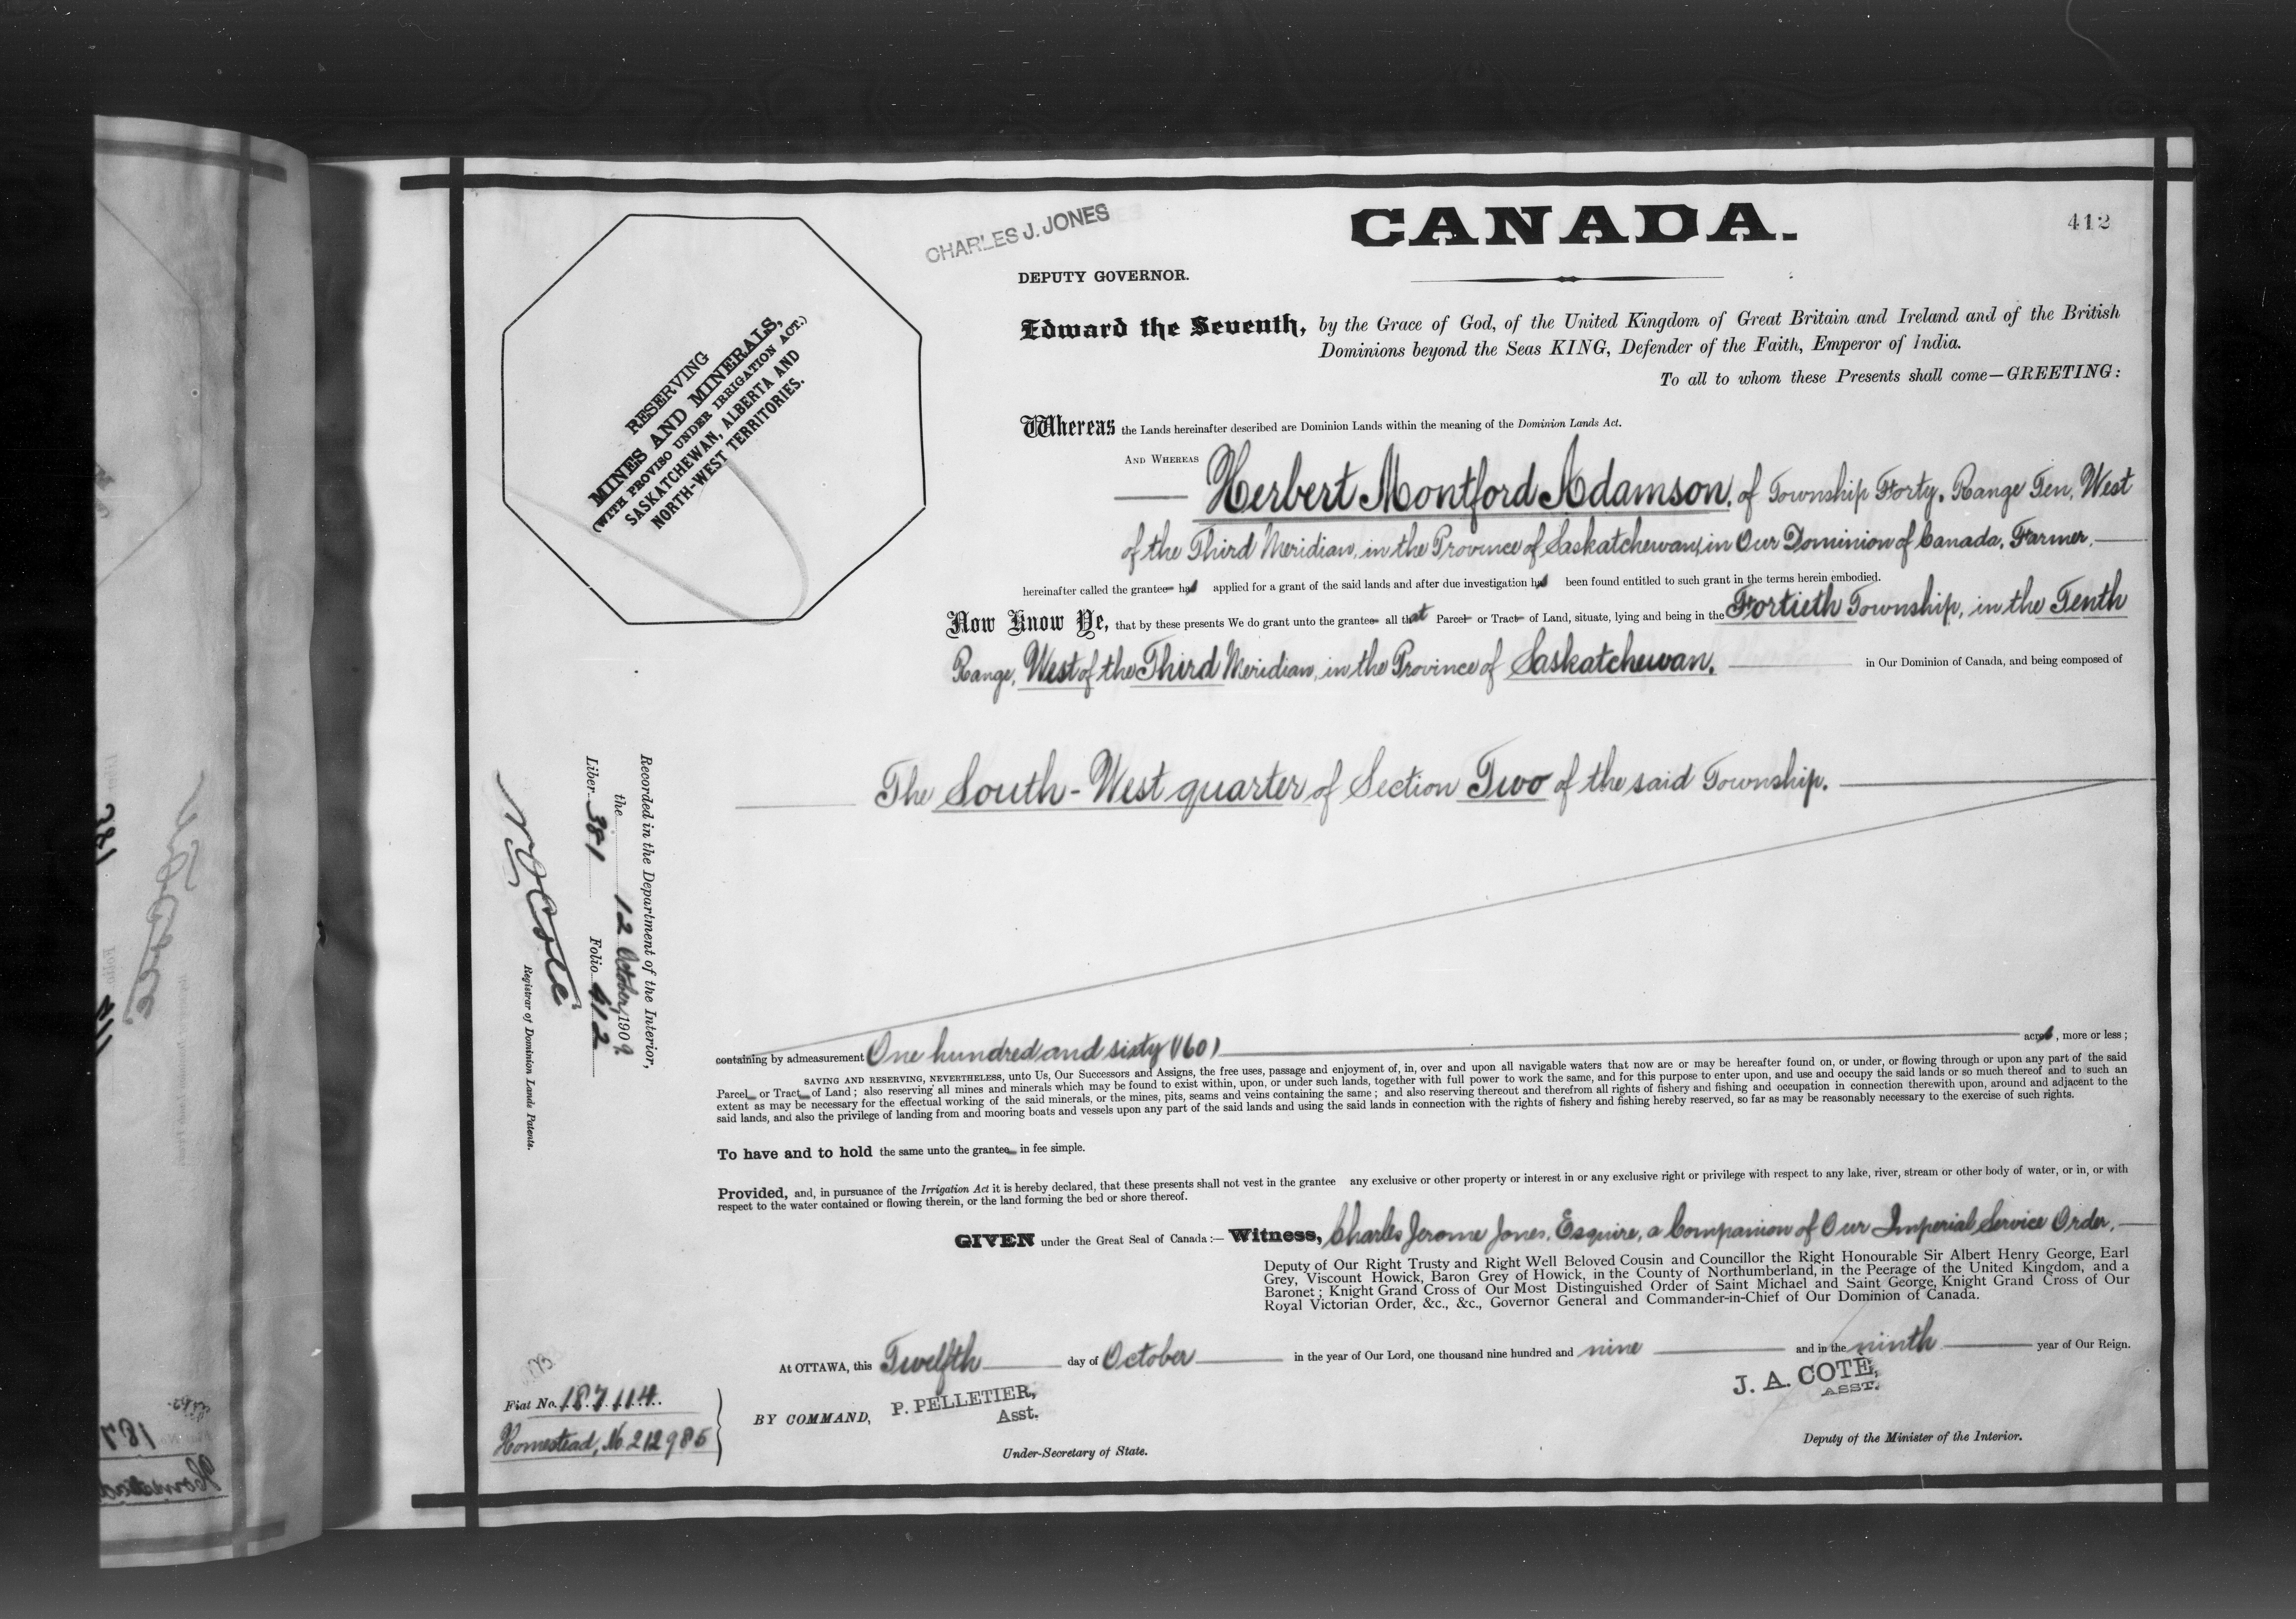 CANADA.
412
CHARLES J. JONES
DEPUTY GOVERNOR.
RESERVING
MINES AND MINERALS,
(WITH PROVISO UNDER IRRIGATION ACT.)
SASKATCHEWAN, ALBERTA AND
NORTH-WEST TERRITORIES.
Edward the Seventh, by the Grace of God, of the United Kingdom of Great Britain and Ireland and of the British
Dominions beyond the Seas KING, Defender of the Faith, Emperor of India.
To all to whom these Presents shall come—GREETING:
Whereas the Lands hereinafter described are Dominion Lands within the meaning of the Dominion Lands Act.
AND WHEREAS
Herbert Montford Adamson, of Township Forty, Range Ten, West
of the Third Meridian, in the Province of Saskatchewan, in Our Dominion of Canada, Farmer,
hereinafter called the grantee has applied for a grant of the said lands and after due investigation has been found entitled to such grant in the terms herein embodied.
Now Know Ye, that by these presents We do grant unto the grantee all that Parcel or Tract of Land, situate, lying and being in the Fortieth Township, in the Tenth
Range, West of the Third Meridian, in the Province of Saskatchewan, in Our Dominion of Canada, and being composed of
The South-West quarter of Section Two of the said Township.
Recorded in the Department of the Interior,
the 12 October, 1909.
Liber 381 Folio 412
N O Coté
Registrar of Dominion Lands Patents.
containing by admeasurement One hundred and sixty (160) acres, more or less;
SAVING AND RESERVING, NEVERTHELESS, unto Us, Our Successors and Assigns, the free uses, passage and enjoyment of, in, over and upon all navigable waters that now are or may be hereafter found on, or under, or flowing through or upon any part of the said
Parcel or Tract of Land; also reserving all mines and minerals which may be found to exist within, upon, or under such lands, together with full power to work the same, and for this purpose to enter upon, and use and occupy the said lands or so much thereof and to such an
extent as may be necessary for the effectual working of the said minerals, or the mines, pits, seams and veins containing the same; and also reserving thereout and therefrom all rights of fishery and fishing and occupation in connection therewith upon, around and adjacent to the
said lands, and also the privilege of landing from and mooring boats and vessels upon any part of the said lands and using the said lands in connection with the rights of fishery and fishing hereby reserved, so far as may be reasonably necessary to the exercise of such rights.
To have and to hold the same unto the grantee in fee simple.
Provided, and, in pursuance of the Irrigation Act it is hereby declared, that these presents shall not vest in the grantee any exclusive or other property or interest in or any exclusive right or privilege with respect to any lake, river, stream or other body of water, or in, or with
respect to the water contained or flowing therein, or the land forming the bed or shore thereof.
GIVEN under the Great Seal of Canada:— Witness, Charles Jerome Jones, Esquire, a Companion of Our Imperial Service Order,
Deputy of Our Right Trusty and Right Well Beloved Cousin and Councillor the Right Honourable Sir Albert Henry George, Earl
Grey, Viscount Howick, Baron Grey of Howick, in the County of Northumberland, in the Peerage of the United Kingdom, and a
Baronet; Knight Grand Cross of Our Most Distinguished Order of Saint Michael and Saint George, Knight Grand Cross of Our
Royal Victorian Order, &c., &c., Governor General and Commander-in-Chief of Our Dominion of Canada.
At OTTAWA, this Twelfth day of October in the year of Our Lord, one thousand nine hundred and nine and in the ninth year of Our Reign.
Fiat No. 187114.
Homestead, No. 212986
BY COMMAND, P. PELLETIER,
Asst.
Under-Secretary of State.
J. A. COTE,
ASST.
Deputy of the Minister of the Interior.